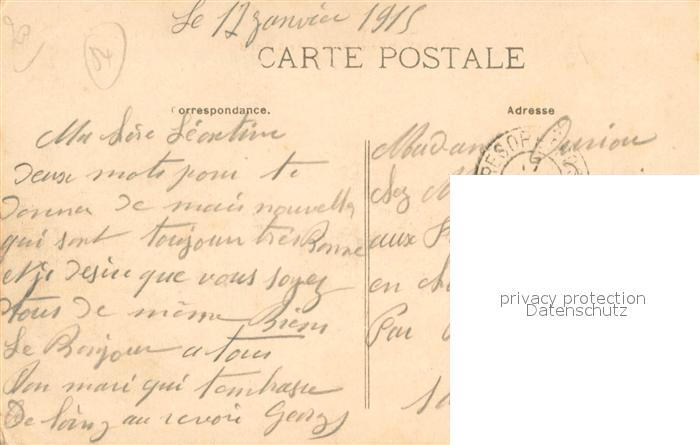 Le 17 janvier 1915
CARTE POSTALE
Correspondance.
Adresse
Ma chère Léontine
deux mots pour te
donner de mais nouvelles
qui sont toujour très Bonne
et je desire que vous soyez
tous de même Biens
Le Bonjour a tous
Ton mari qui t'embrasse
De loing au revoir Georges
Madame
chez M
aux
en
Par
privacy protection
Datenschutz